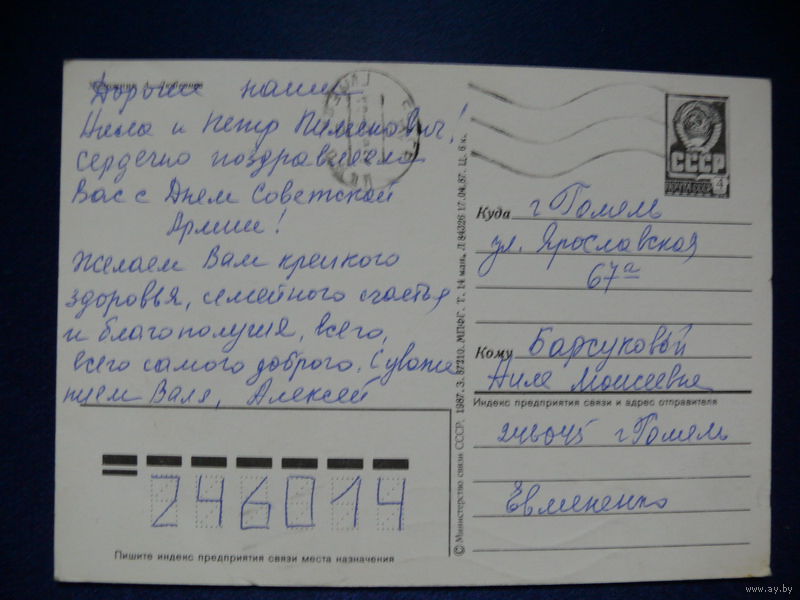 Дорогие наши
Нила и Пётр Пименович!
Сердечно поздравляем
Вас с Днем Советской
Армии!
Желаем Вам крепкого
здоровья, семейного счастья
и благополучия, всего,
всего самого доброго. С уваже
нием Валя, Алексей
246014
Пишите индекс предприятия связи места назначения
© Министерство связи СССР. 1987. З. 87210. МПФГ. Т. 14 млн. Л 84326 17.04.87. Ц. 6 к.
СССР
ПОЧТА СССР
4
Куда г Гомель
ул. Ярославская
67а
Кому Барсуковой
Ниле Моисеевне
Индекс предприятия связи и адрес отправителя
246045 г Гомель
Евмененко
www.ay.by